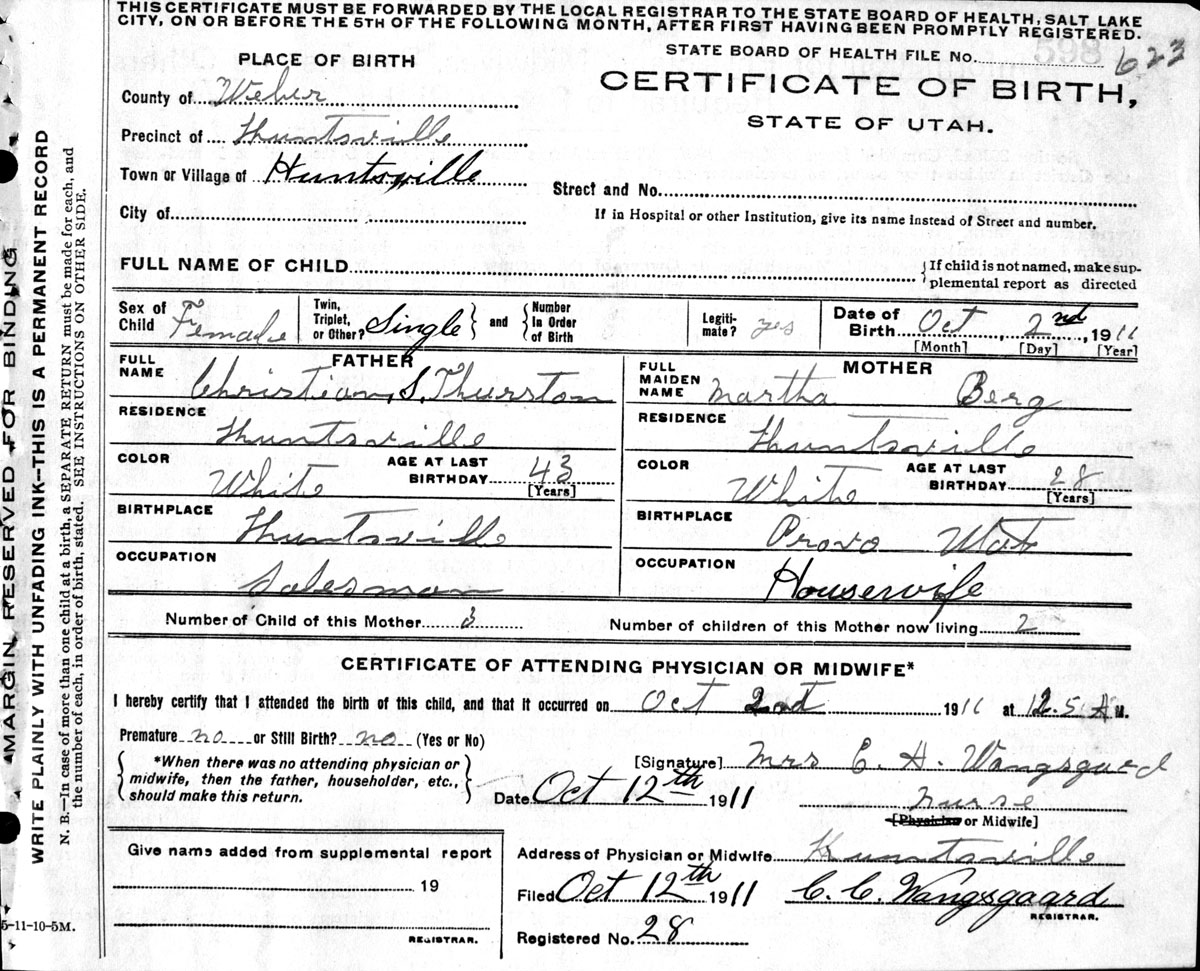 THIS CERTIFICATE MUST BE FORWARDED BY THE LOCAL REGISTRAR TO THE STATE BOARD OF HEALTH, SALT LAKE
CITY, ON OR BEFORE THE 5TH OF THE FOLLOWING MONTH, AFTER FIRST HAVING BEEN PROMPTLY REGISTERED.
STATE BOARD OF HEALTH FILE NO. 598 623
PLACE OF BIRTH
CERTIFICATE OF BIRTH,
STATE OF UTAH.
County of Weber
Precinct of Huntsville
Town or Village of Huntsville
Street and No.
City of
If in Hospital or other Institution, give its name instead of Street and number.
FULL NAME OF CHILD
{If child is not named, make sup-
plemental report as directed
Sex of Child Female
Twin, Triplet, or Other? Single } and { Number In Order of Birth
Legiti-mate? yes
Date of Birth Oct, 2nd, 1911
[Month] [Day] [Year]
FATHER
MOTHER
FULL NAME Christian S. Thurston
FULL MAIDEN NAME Martha Berg
RESIDENCE Huntsville
RESIDENCE Huntsville
COLOR White AGE AT LAST BIRTHDAY 43 [Years]
COLOR White AGE AT LAST BIRTHDAY 28 [Years]
BIRTHPLACE Huntsville
BIRTHPLACE Provo Utah
OCCUPATION Salesman
OCCUPATION Housewife
Number of Child of this Mother 3
Number of children of this Mother now living 2
CERTIFICATE OF ATTENDING PHYSICIAN OR MIDWIFE*
I hereby certify that I attended the birth of this child, and that it occurred on Oct 2nd 1911 at 12.5 A M.
Premature no or Still Birth? no (Yes or No)
{ *When there was no attending physician or
midwife, then the father, householder, etc.,
should make this return. }
[Signature] Mrs C. A. Wangsgaard
Date Oct 12th 1911
nurse
[Physician or Midwife]
Give name added from supplemental report
19
REGISTRAR.
Address of Physician or Midwife Huntsville
Filed Oct 12th 1911
C. C. Wangsgaard
REGISTRAR.
Registered No. 28
MARGIN RESERVED FOR BINDING
WRITE PLAINLY WITH UNFADING INK—THIS IS A PERMANENT RECORD
N. B.—In case of more than one child at a birth, a SEPARATE RETURN must be made for each, and
the number of each, in order of birth, stated. SEE INSTRUCTIONS ON OTHER SIDE.
5-11-10-5M.